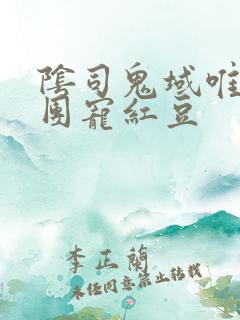 陰司鬼域唯
團寵紅豆
李正蘭
未经同意禁止转载